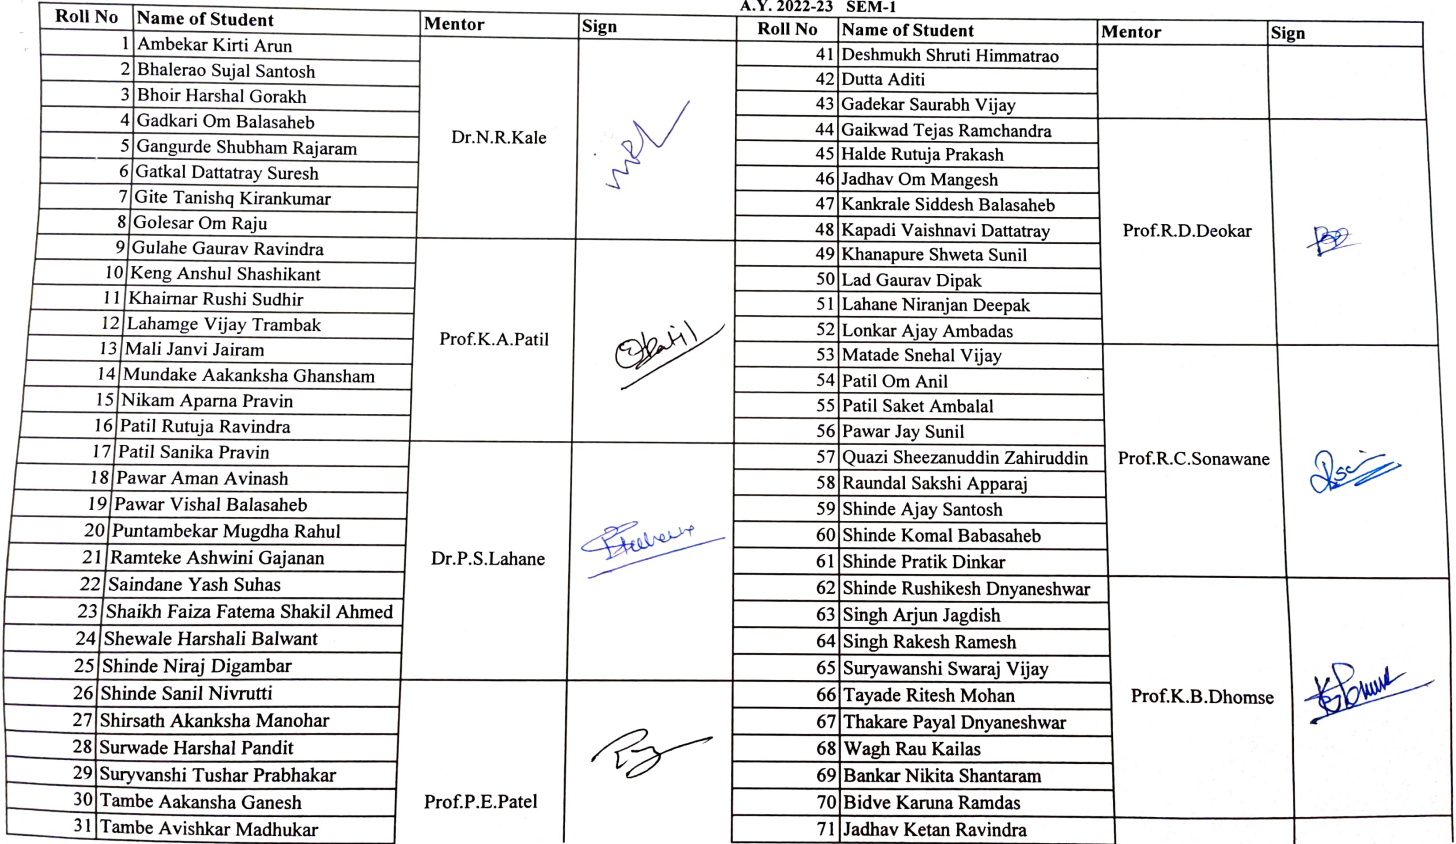 A.Y. 2022-23 SEM-1
Roll No Name of Student Mentor Sign
1 Ambekar Kirti Arun
2 Bhalerao Sujal Santosh
3 Bhoir Harshal Gorakh
4 Gadkari Om Balasaheb
Dr.N.R.Kale
5 Gangurde Shubham Rajaram
6 Gatkal Dattatray Suresh
7 Gite Tanishq Kirankumar
8 Golesar Om Raju
9 Gulahe Gaurav Ravindra
10 Keng Anshul Shashikant
11 Khairnar Rushi Sudhir
12 Lahamge Vijay Trambak
Prof.K.A.Patil
13 Mali Janvi Jairam
14 Mundake Aakanksha Ghansham
15 Nikam Aparna Pravin
16 Patil Rutuja Ravindra
17 Patil Sanika Pravin
18 Pawar Aman Avinash
19 Pawar Vishal Balasaheb
20 Puntambekar Mugdha Rahul
21 Ramteke Ashwini Gajanan
Dr.P.S.Lahane
22 Saindane Yash Suhas
23 Shaikh Faiza Fatema Shakil Ahmed
24 Shewale Harshali Balwant
25 Shinde Niraj Digambar
26 Shinde Sanil Nivrutti
27 Shirsath Akanksha Manohar
28 Surwade Harshal Pandit
29 Suryvanshi Tushar Prabhakar
30 Tambe Aakansha Ganesh
Prof.P.E.Patel
31 Tambe Avishkar Madhukar
Roll No Name of Student Mentor Sign
41 Deshmukh Shruti Himmatrao
42 Dutta Aditi
43 Gadekar Saurabh Vijay
44 Gaikwad Tejas Ramchandra
45 Halde Rutuja Prakash
46 Jadhav Om Mangesh
47 Kankrale Siddesh Balasaheb
48 Kapadi Vaishnavi Dattatray
Prof.R.D.Deokar
49 Khanapure Shweta Sunil
50 Lad Gaurav Dipak
51 Lahane Niranjan Deepak
52 Lonkar Ajay Ambadas
53 Matade Snehal Vijay
54 Patil Om Anil
55 Patil Saket Ambalal
56 Pawar Jay Sunil
57 Quazi Sheezanuddin Zahiruddin
Prof.R.C.Sonawane
58 Raundal Sakshi Apparaj
59 Shinde Ajay Santosh
60 Shinde Komal Babasaheb
61 Shinde Pratik Dinkar
62 Shinde Rushikesh Dnyaneshwar
63 Singh Arjun Jagdish
64 Singh Rakesh Ramesh
65 Suryawanshi Swaraj Vijay
66 Tayade Ritesh Mohan
Prof.K.B.Dhomse
67 Thakare Payal Dnyaneshwar
68 Wagh Rau Kailas
69 Bankar Nikita Shantaram
70 Bidve Karuna Ramdas
71 Jadhav Ketan Ravindra